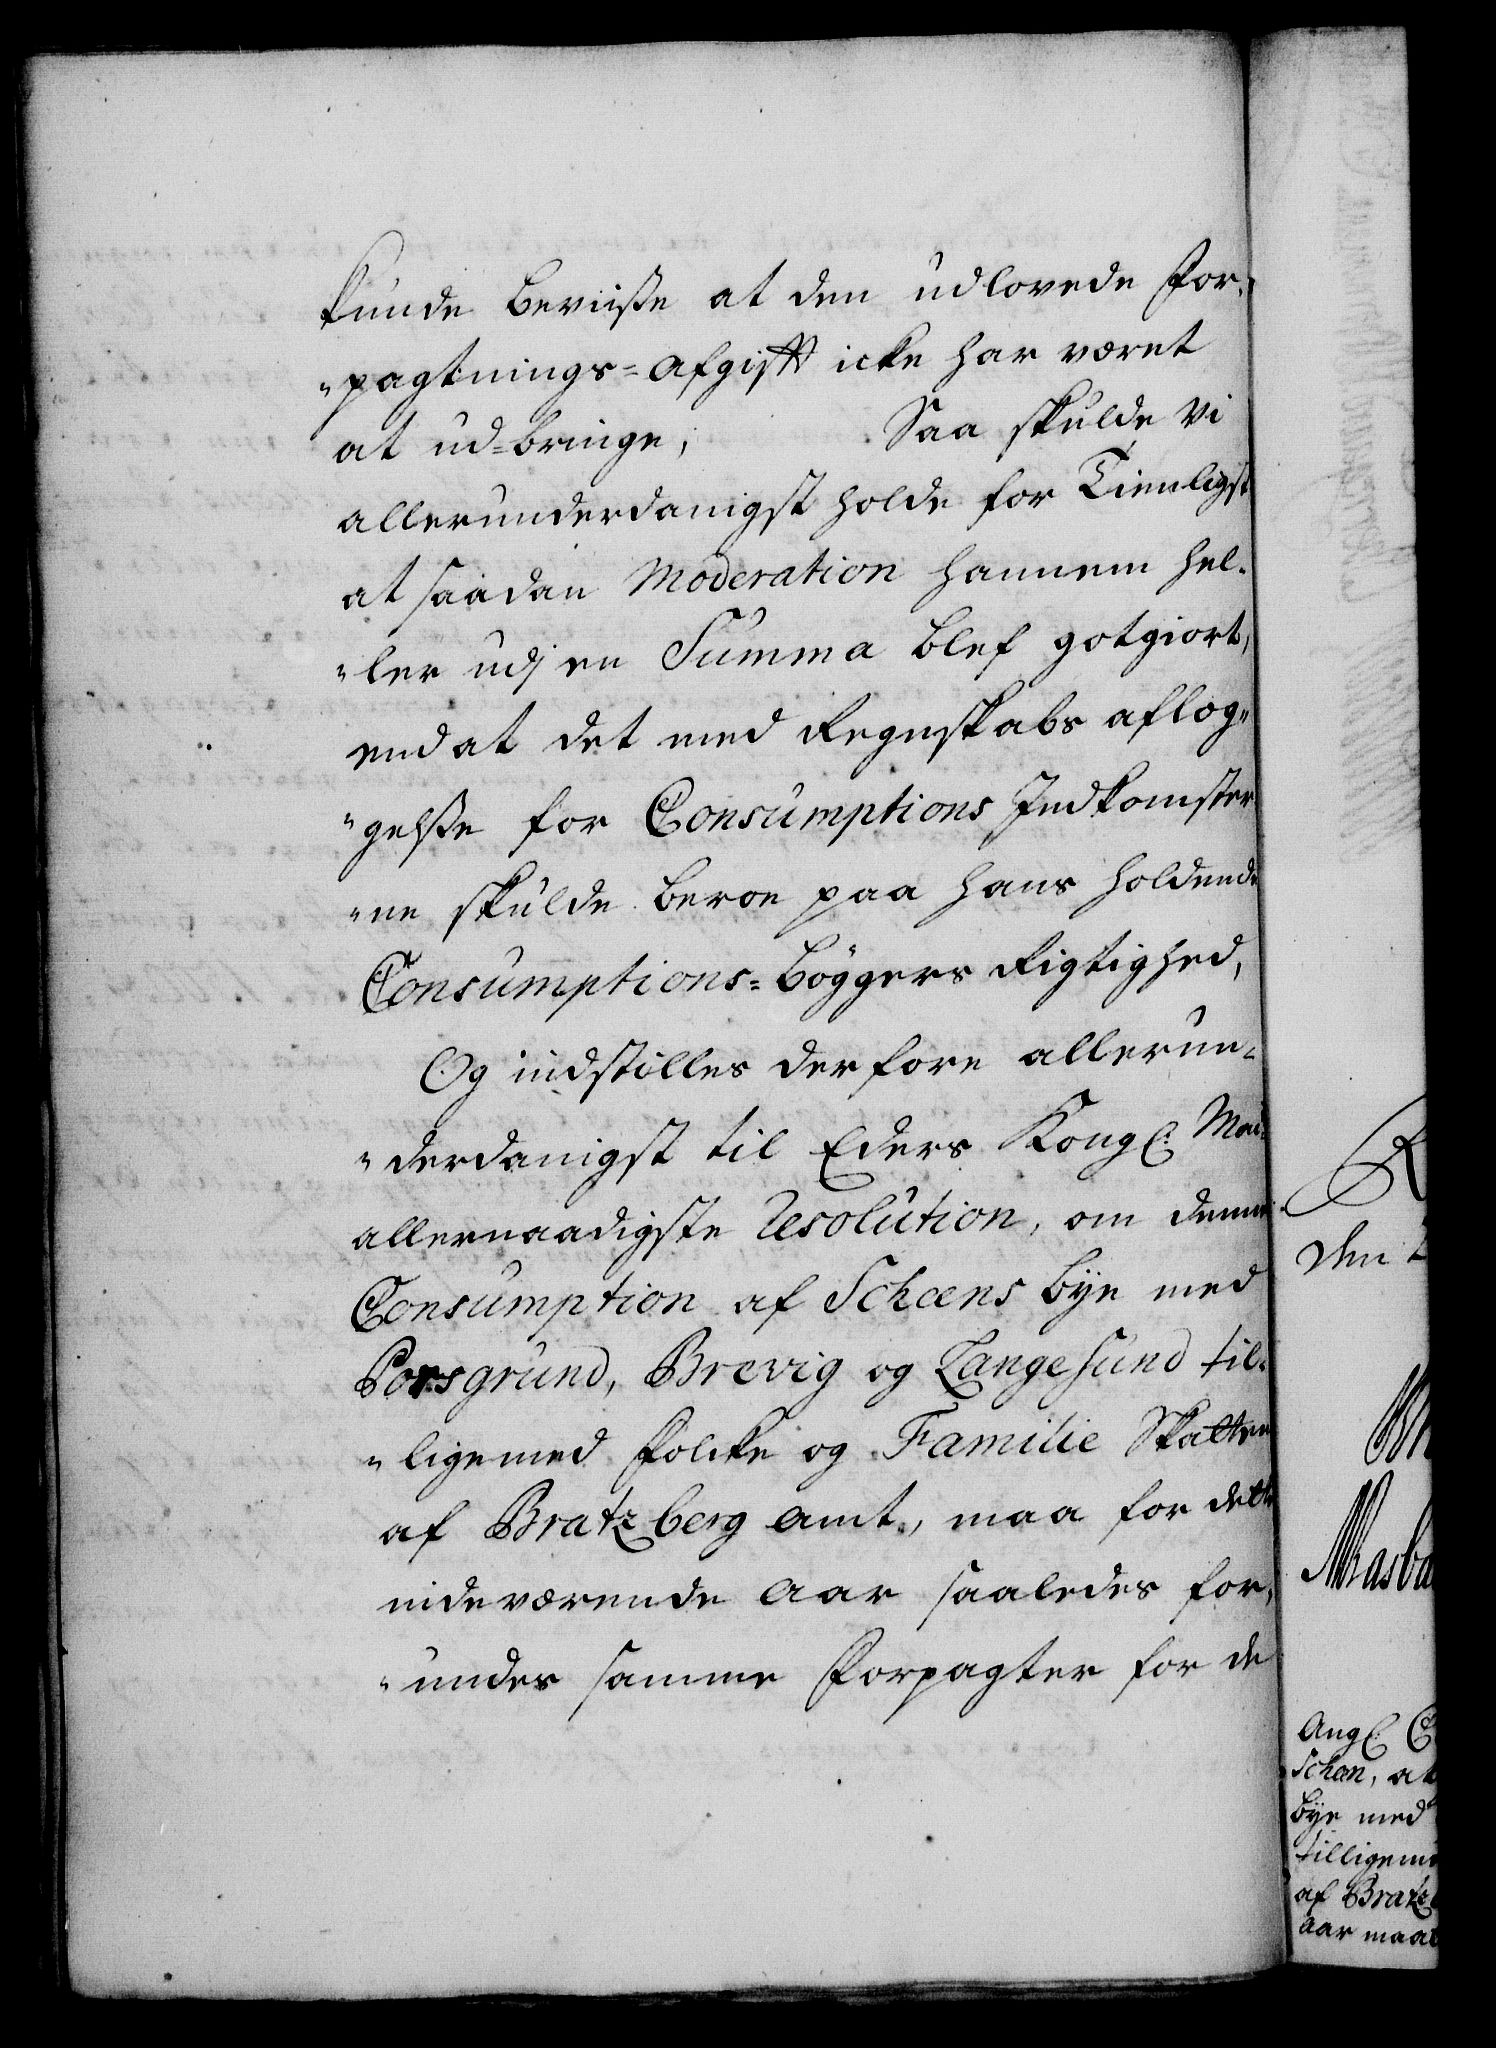 kunde beviiße at den udlovede For-
"pagtnings-Afgift icke har været
at ud-bringe, Saa skulde Vi
allerunderdanigst holde for Tienligst
at saadan Moderation hannem hel-
"ler udj en Summa blef gotgiort,
end at det med Regnskabs aflæg-
"gelße for Consumptions Indkomster
"ne skulde beroe paa hans holdende
Consumptions-bøggers Rigtighed,
Og indstilles derfore allerun-
"derdanigst til Eders Kongl: May:
allernaadigste Resolution, om denne
Consumption af Scheens bye med
Porsgrund, Brevig og Langesund til-
"ligemed Folke og Familie Skatten
af Bratzberg Amt, maa for dette
indeværende Aar saaledes for-
"undes samme Forpagter for de
den
Angl: C
Scheen, at
bye med
tilligeme
af Bratz
Aar maa